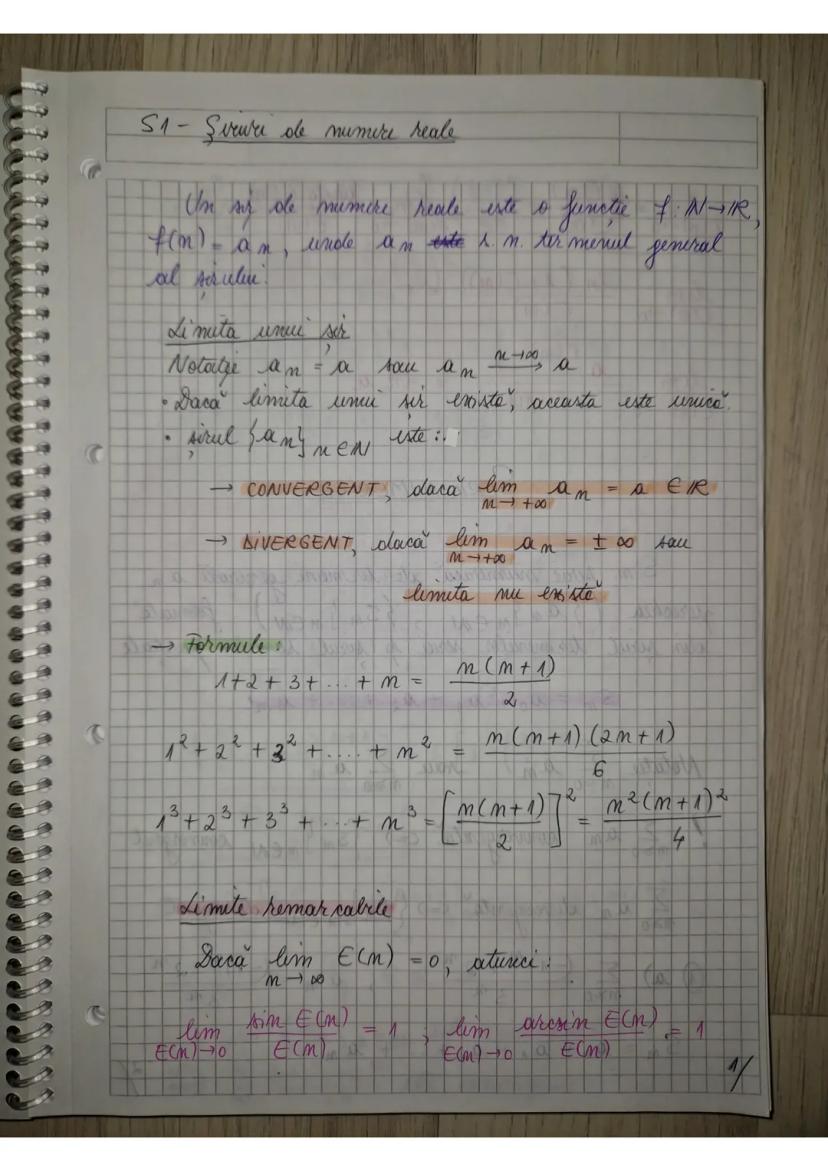 S1 - Șiruri de numere reale
Un șir de numere reale este o funcție f: ℕ→ℝ,
f(n) = a_n, unde a_n s.n. termenul general
al șirului.
Limita unui șir
Notație a_n = a sau a_n \xrightarrow{n→∞} a
• Dacă limita unui șir există, aceasta este unică.
• șirul {a_n}_{n∈ℕ} este:
→ CONVERGENT, dacă lim_{n→+∞} a_n = a ∈ ℝ
→ DIVERGENT, dacă lim_{n→+∞} a_n = ±∞ sau
limita nu există
→ Formule:
1+2+3+...+n = \frac{n(n+1)}{2}
1² + 2² + 3² + .... + n² = \frac{n(n+1)(2n+1)}{6}
1³ + 2³ + 3³ + ... + n³ = [\frac{n(n+1)}{2}]² = \frac{n²(n+1)²}{4}
Limite remarcabile
Dacă lim_{n→∞} E(n) = 0, atunci:
lim_{E(n)→0} \frac{sin E(n)}{E(n)} = 1 ; lim_{E(n)→0} \frac{arcsin E(n)}{E(n)} = 1
1/